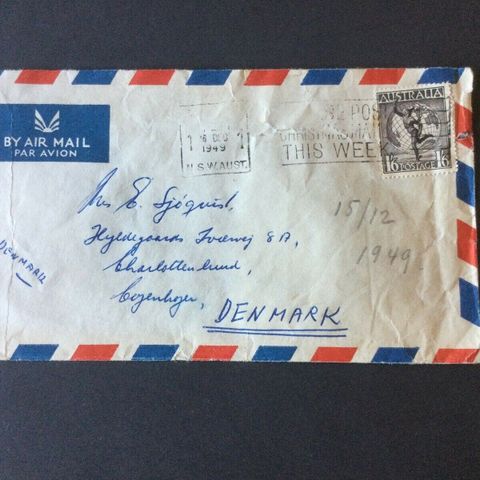 BY AIR MAIL
PAR AVION
1 6 DEC 1
1949
N.S.W. AUST.
POST
CHRISTMAS MAIL
THIS WEEK
AUSTRALIA
1/6 POSTAGE 1/6
Mrs E. Sjöqvist,
Hyldegaards Tværvej 8A,
Charlottenlund,
DENMARK
DENMARK
15/12
1949.